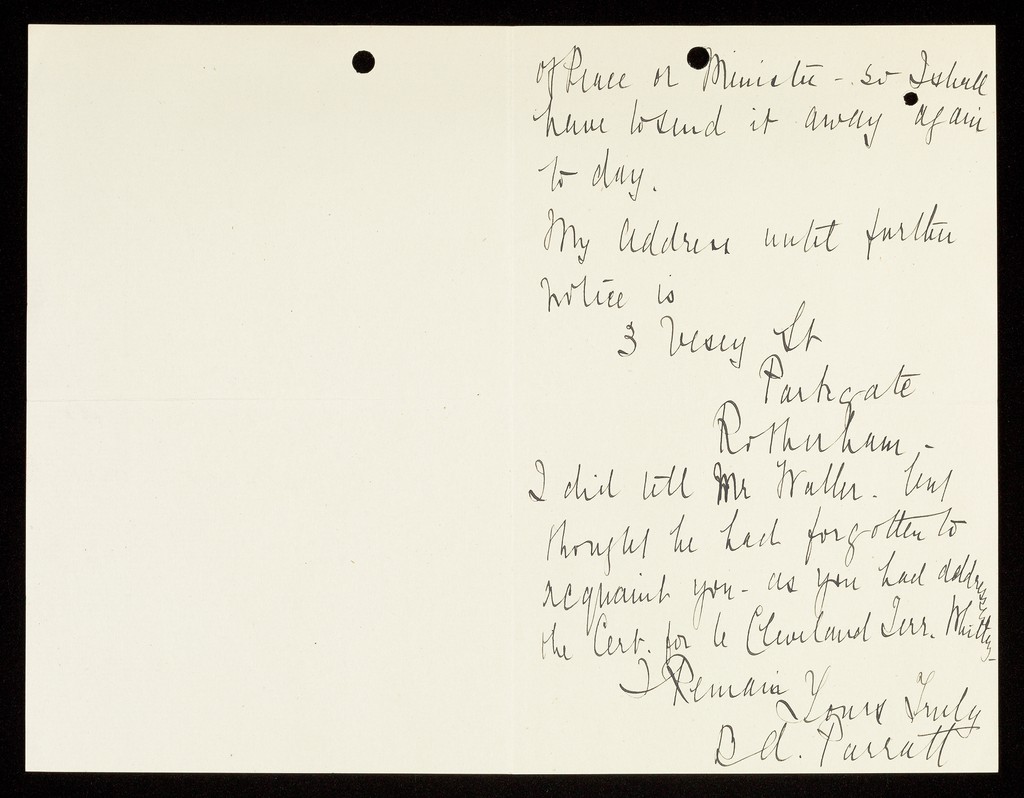 of Peace or Minister - so I shall
have to send it away again
to day.
My address until further
notice is
3 Vesey St
Parkgate
Rotherham -
I did tell Mr Waller. but
thought he had forgotten to
acquaint you - as you had address
the Cert. for to Cleveland Terr. Whitby -
I Remain
Yours Truly
B A. Parratt